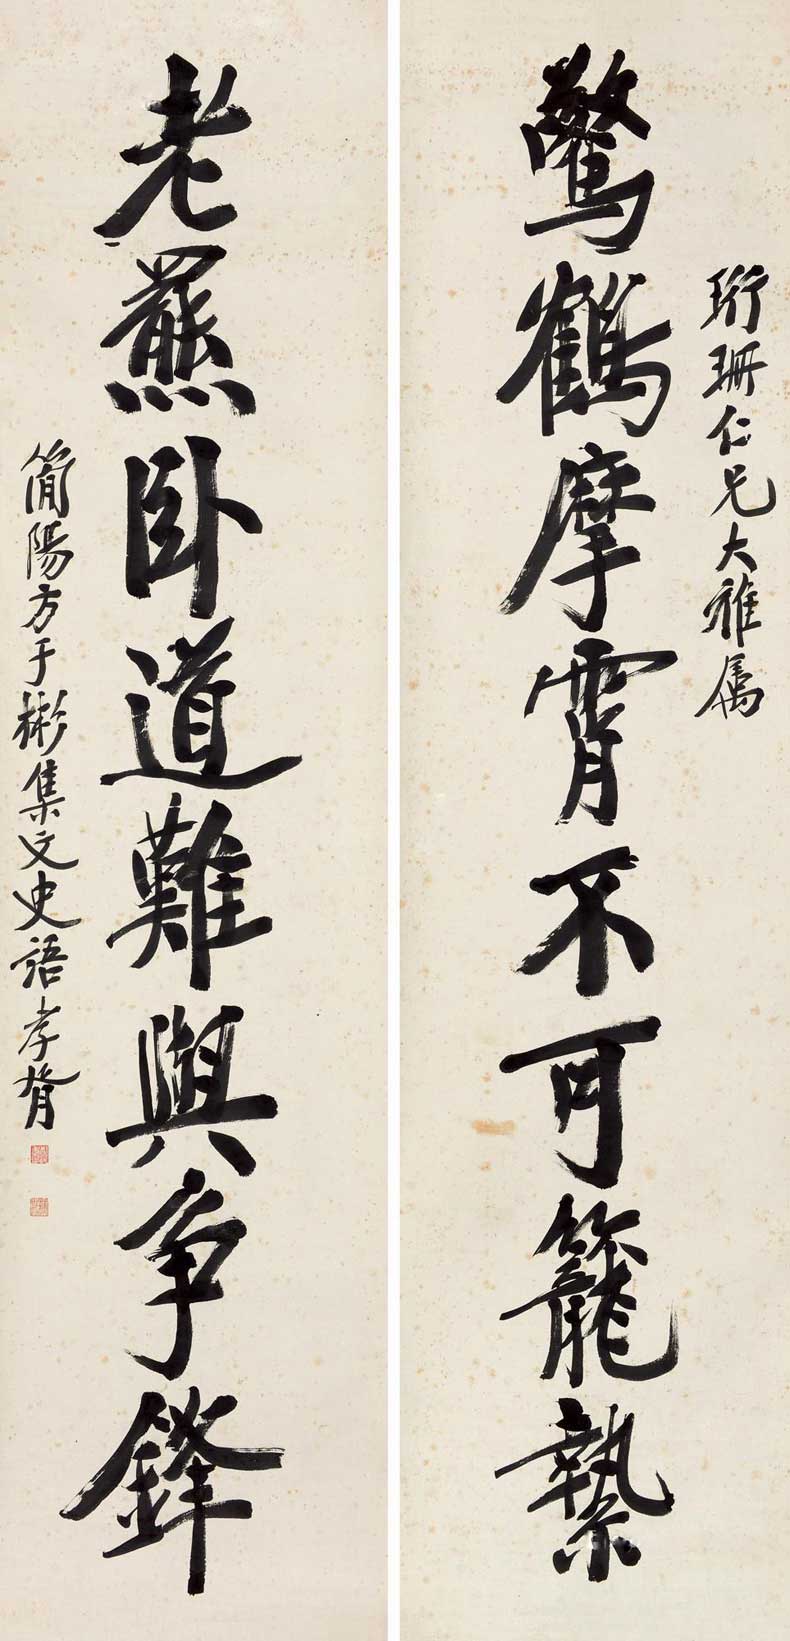 珩珊仁兄大雅属
驚鶴摩霄不可籠縶
老羆卧道難與争鋒
簡陽方于彬集文史語孝胥